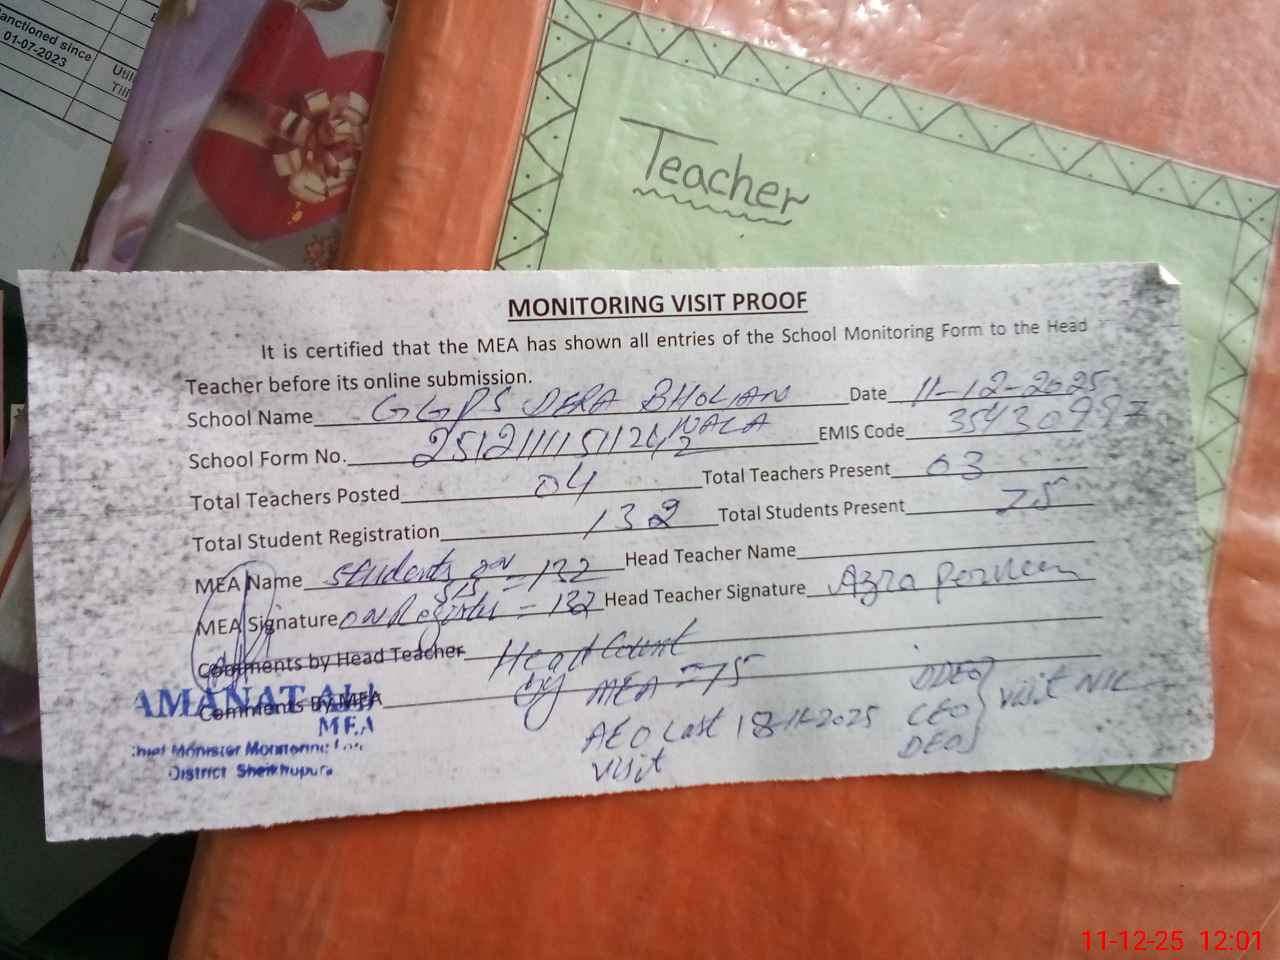 Sanctioned since
01-07-2023
Teacher
MONITORING VISIT PROOF
It is certified that the MEA has shown all entries of the School Monitoring Form to the Head
Teacher before its online submission.
School Name GGPS DERA BHOLIAN WALA Date 11-12-2025
School Form No. EMIS Code 35430997
Total Teachers Posted 04 Total Teachers Present 03
Total Student Registration 132 Total Students Present 75
MEA Name students on SIS = 132 Head Teacher Name
MEA Signature on Register = 132 Head Teacher Signature Azra Perveen
Comments by Head Teacher Head Count
Comments by MEA by MEA = 75
AEO Last 18-11-2025
visit
DDEO
CEO visit NIL
DEO
AMANAT ALI
MEA
Chief Minister Monitoring
District Sheikhupura
11-12-25 12:01